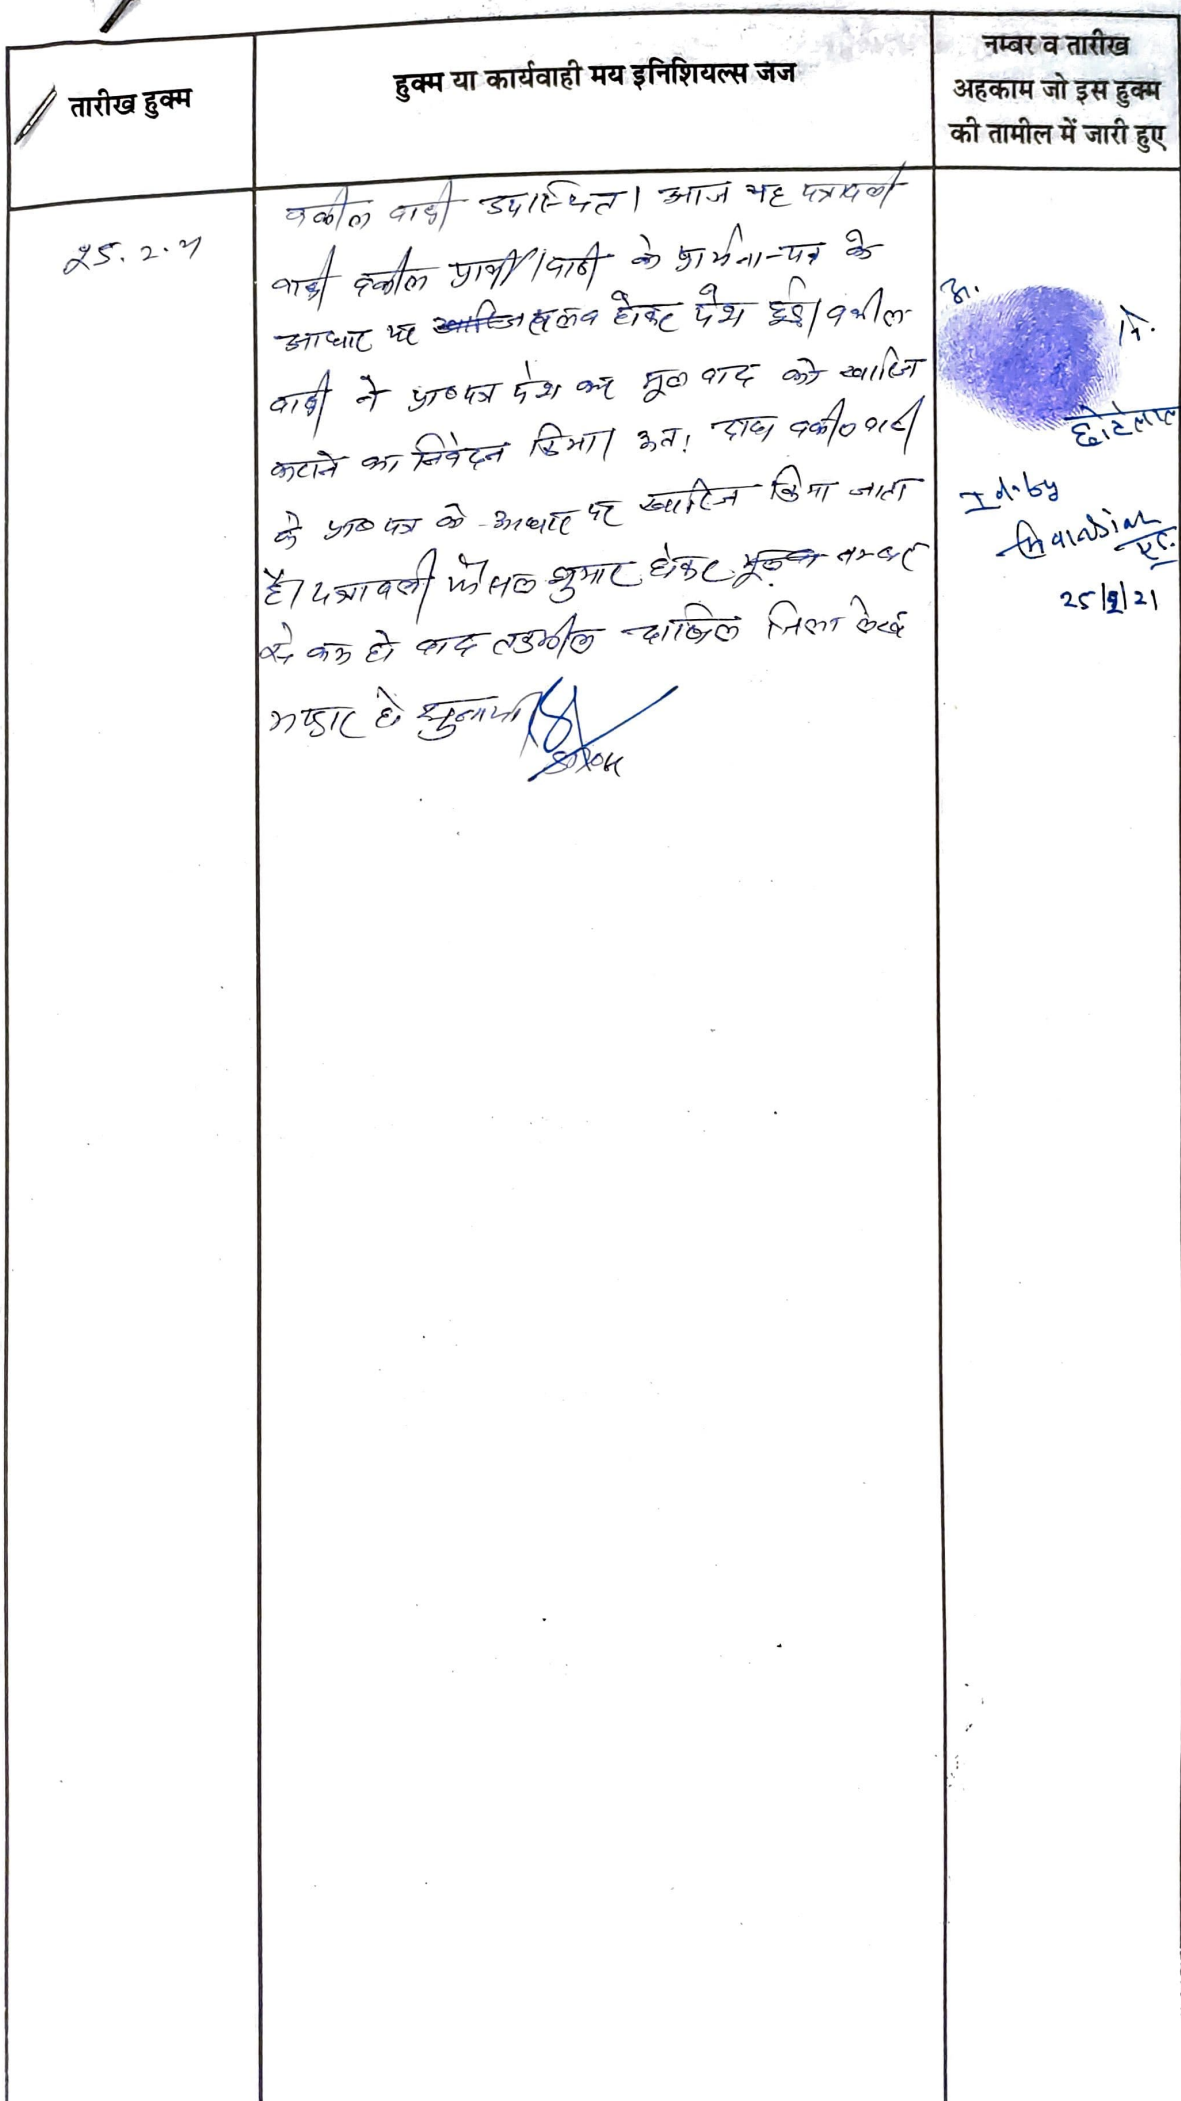 तारीख हुक्म
हुक्म या कार्यवाही मय इनिशियल्स जज
नम्बर व तारीख
अहकाम जो इस हुक्म
की तामील में जारी हुए
25.2.21
वकील वादी उपस्थित। आज यह पत्रावली
वादी वकील प्रार्थी/वादी के प्रार्थना-पत्र के
आधार पर तलब होकर पेश हुई। वकील
वादी ने प्रा०पत्र पेश कर मूल वाद को खारिज
कराने का निवेदन किया। अतः वकील वादी
के प्रा० पत्र के आधार पर खारिज किया जाता
है। पत्रावली फैसल शुमार होकर नम्बर
से कम हो बाद तकमील दाखिल जिला लेख
भण्डार हो
अ.
नि.
छोटेलाल
Id. by
25/2/21